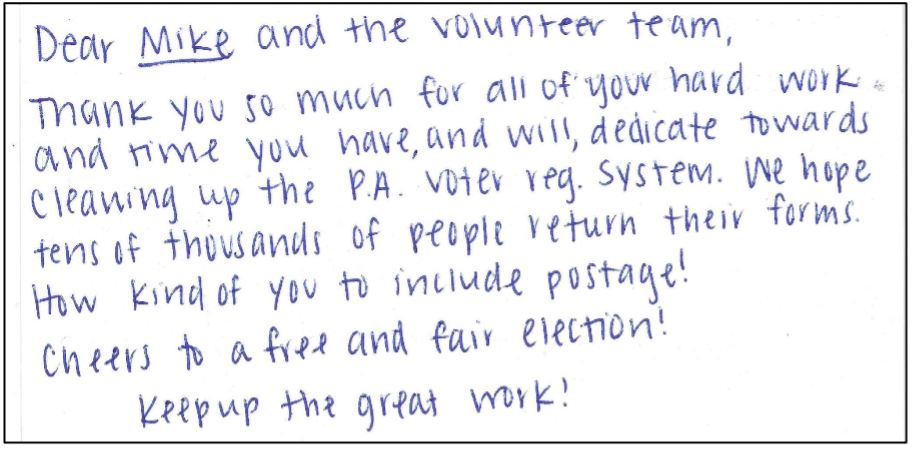 Dear Mike and the volunteer team,
Thank you so much for all of your hard work
and time you have, and will, dedicate towards
cleaning up the P.A. voter reg. system. We hope
tens of thousands of people return their forms.
How kind of you to include postage!
Cheers to a free and fair election!
Keep up the great work!